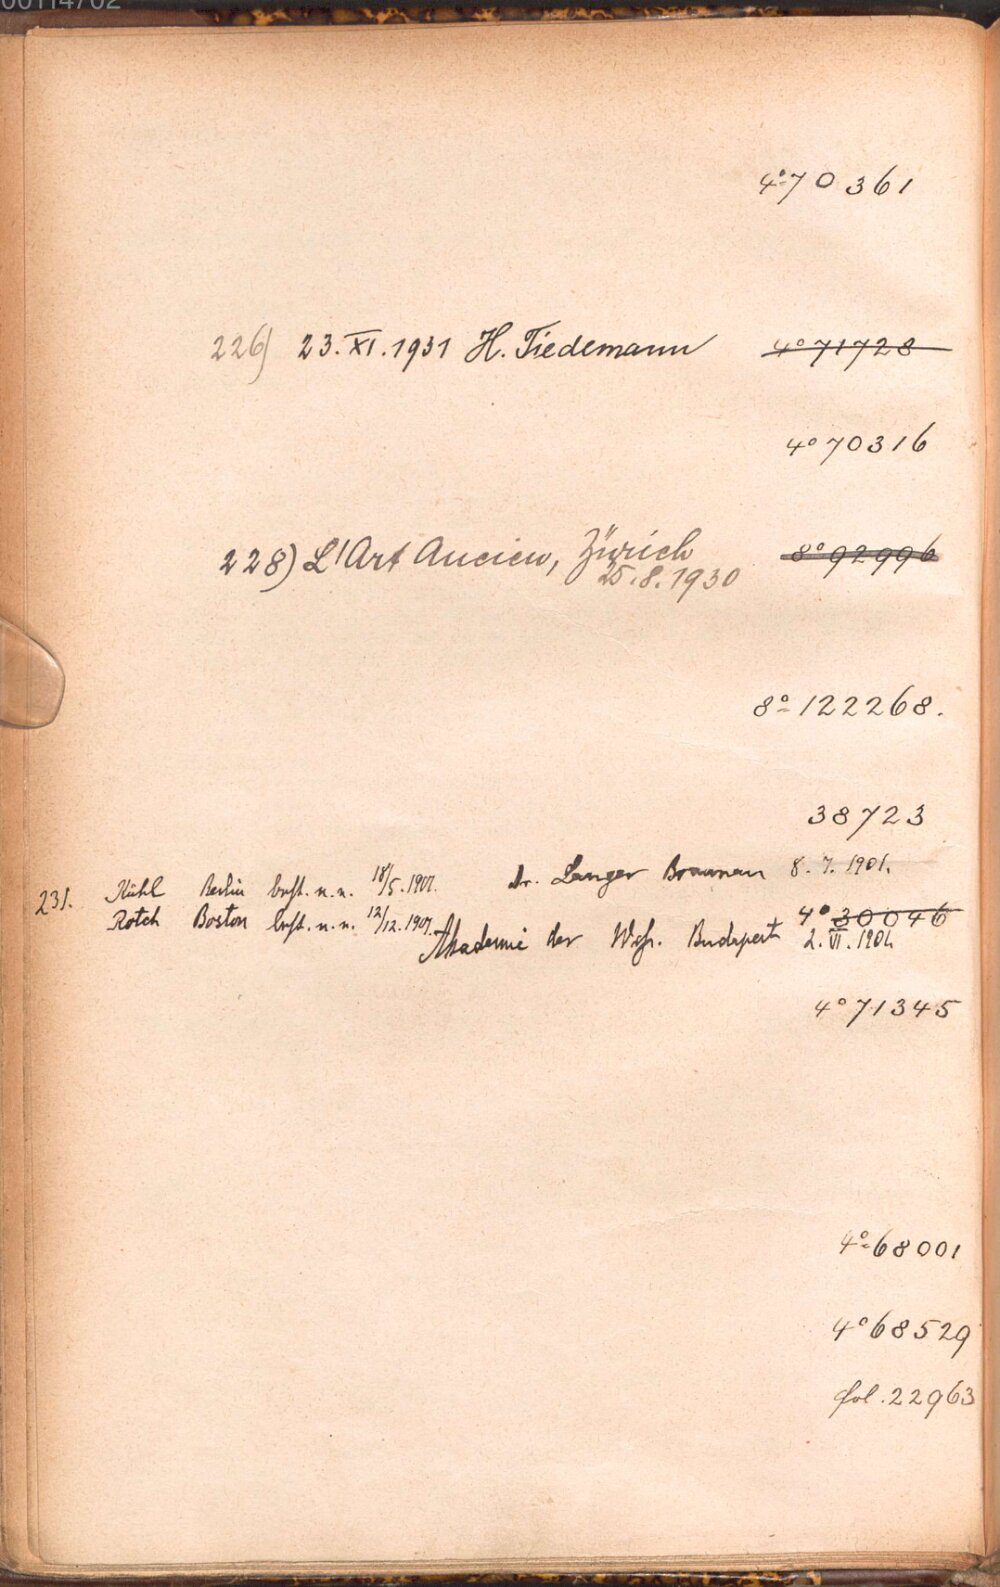 00114702
4° 70 361
226) 23.XI.1931 H. Tiedemann 4° 71728
4° 70316
228) L'Art Ancien, Zürich 8° 92996
25.8.1930
8° 122268.
38723
231. Kühl Berlin besft. n. n. 18/5.1901. Dr. Langer Braunau 8. 7. 1901.
Rotch Boston besft. n. n. 12/12.1901. 4° 30046
Akademie der Wssch. Budapest 2. VI. 1904
4° 71345
4° 68001
4° 68529
fol. 22963